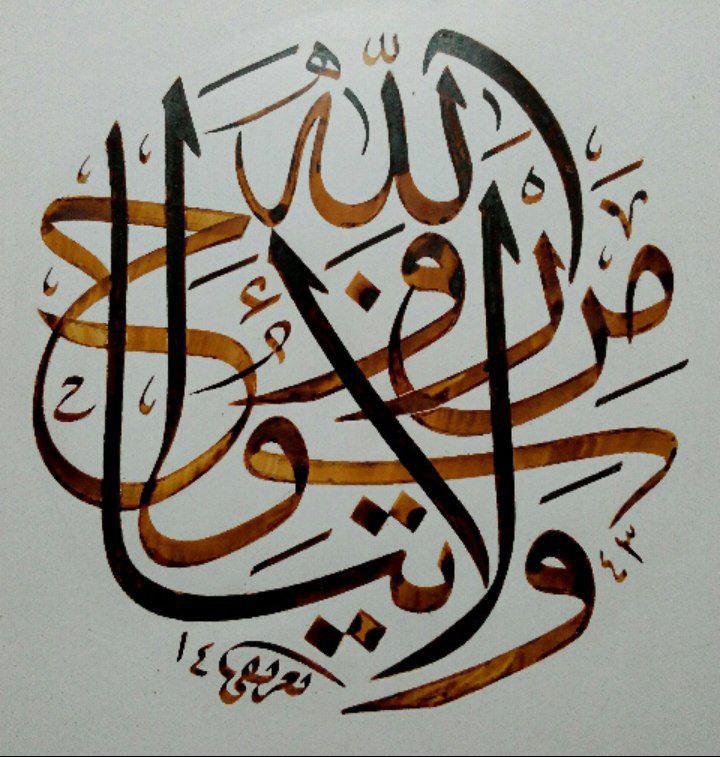 وَلَا تَيْأَسُوا مِنْ رَوْحِ اللّٰهِ
١٤ ٤٣